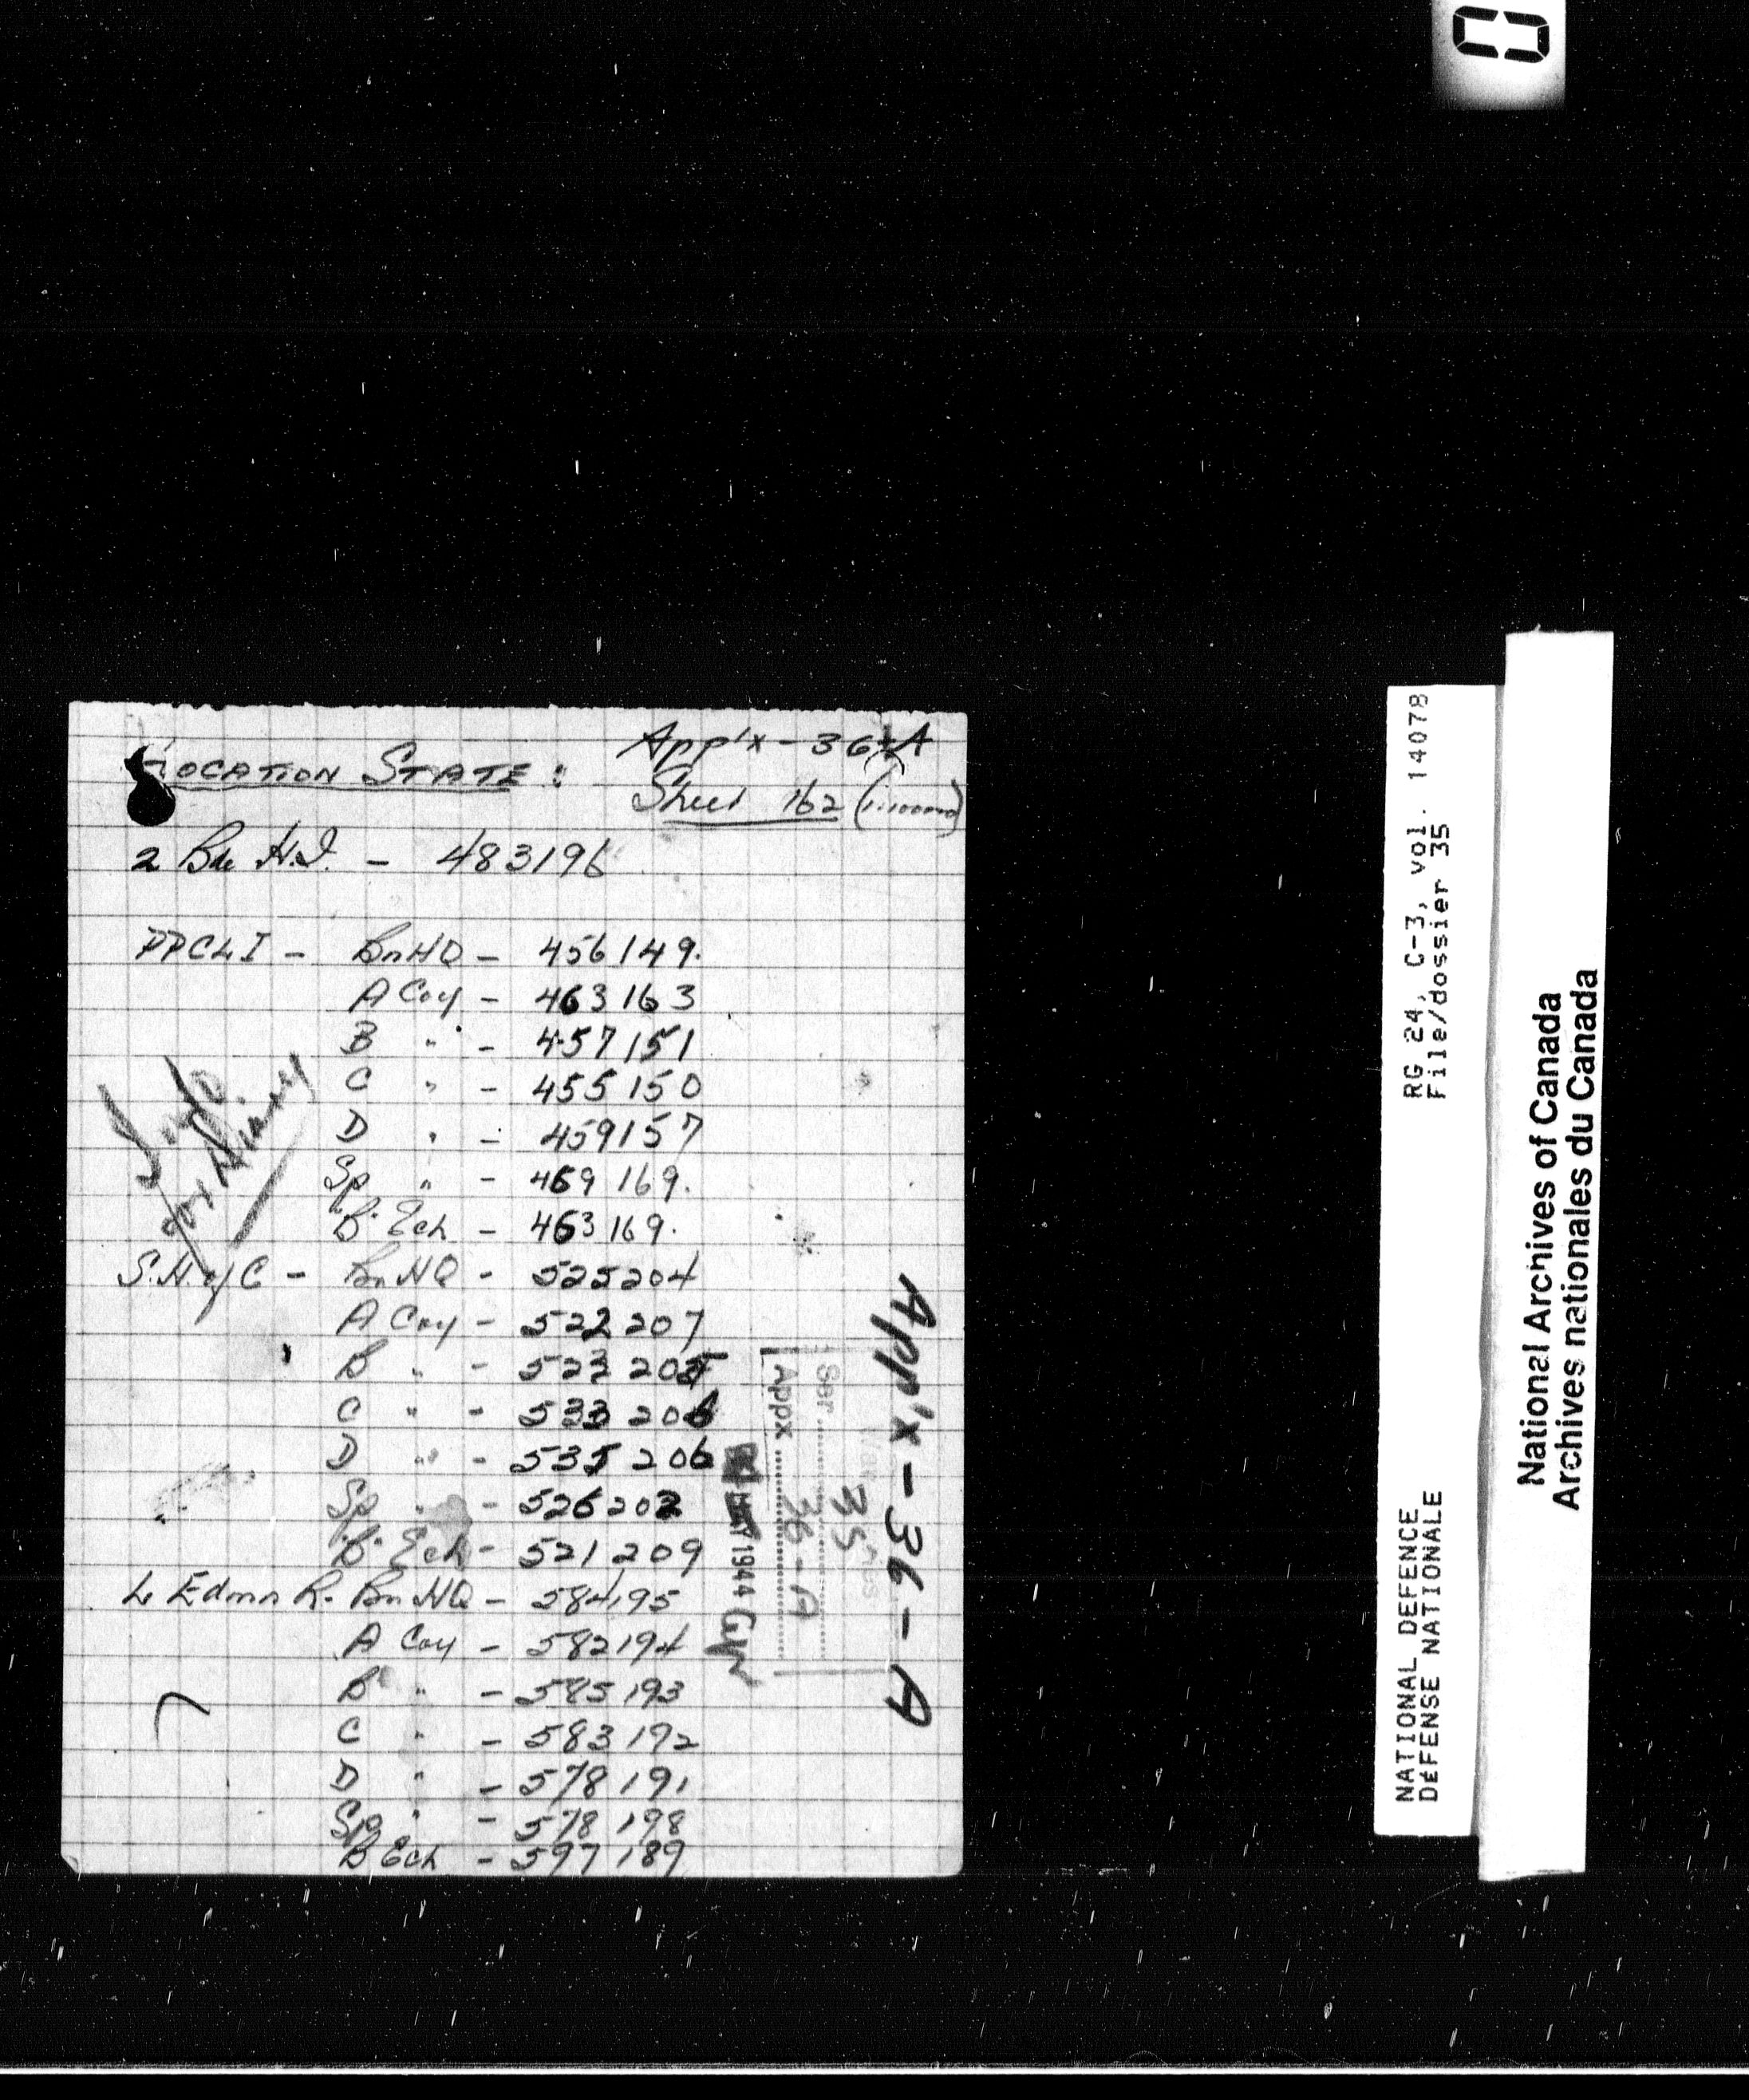 0
App'x - 36-A
LOCATION STATE :
Sheet 162
2 Bde H.Q. - 483196
PPCLI - Bn HQ - 456149.
A Coy - 463163
B " - 457151
C " - 455150
D " - 459157
Sp " - 469169.
B. Ech - 463169.
for Diary
S.H. of C - Bn HQ - 525204
A Coy - 522207
B " - 523205
C " - 533206
D " - 535206
Sp " - 526202
B. Ech - 521209
L Edmn R. Bn HQ - 584195
A Coy - 582194
B " - 585193
C " - 583192
D " - 578191
Sp " - 578198
B Ech - 597189
App'x - 36 - A
Ser. 35
Appx 36-A
MAY 1944
RG 24, C-3, vol. 14078
File/dossier 35
NATIONAL DEFENCE
DÉFENSE NATIONALE
National Archives of Canada
Archives nationales du Canada